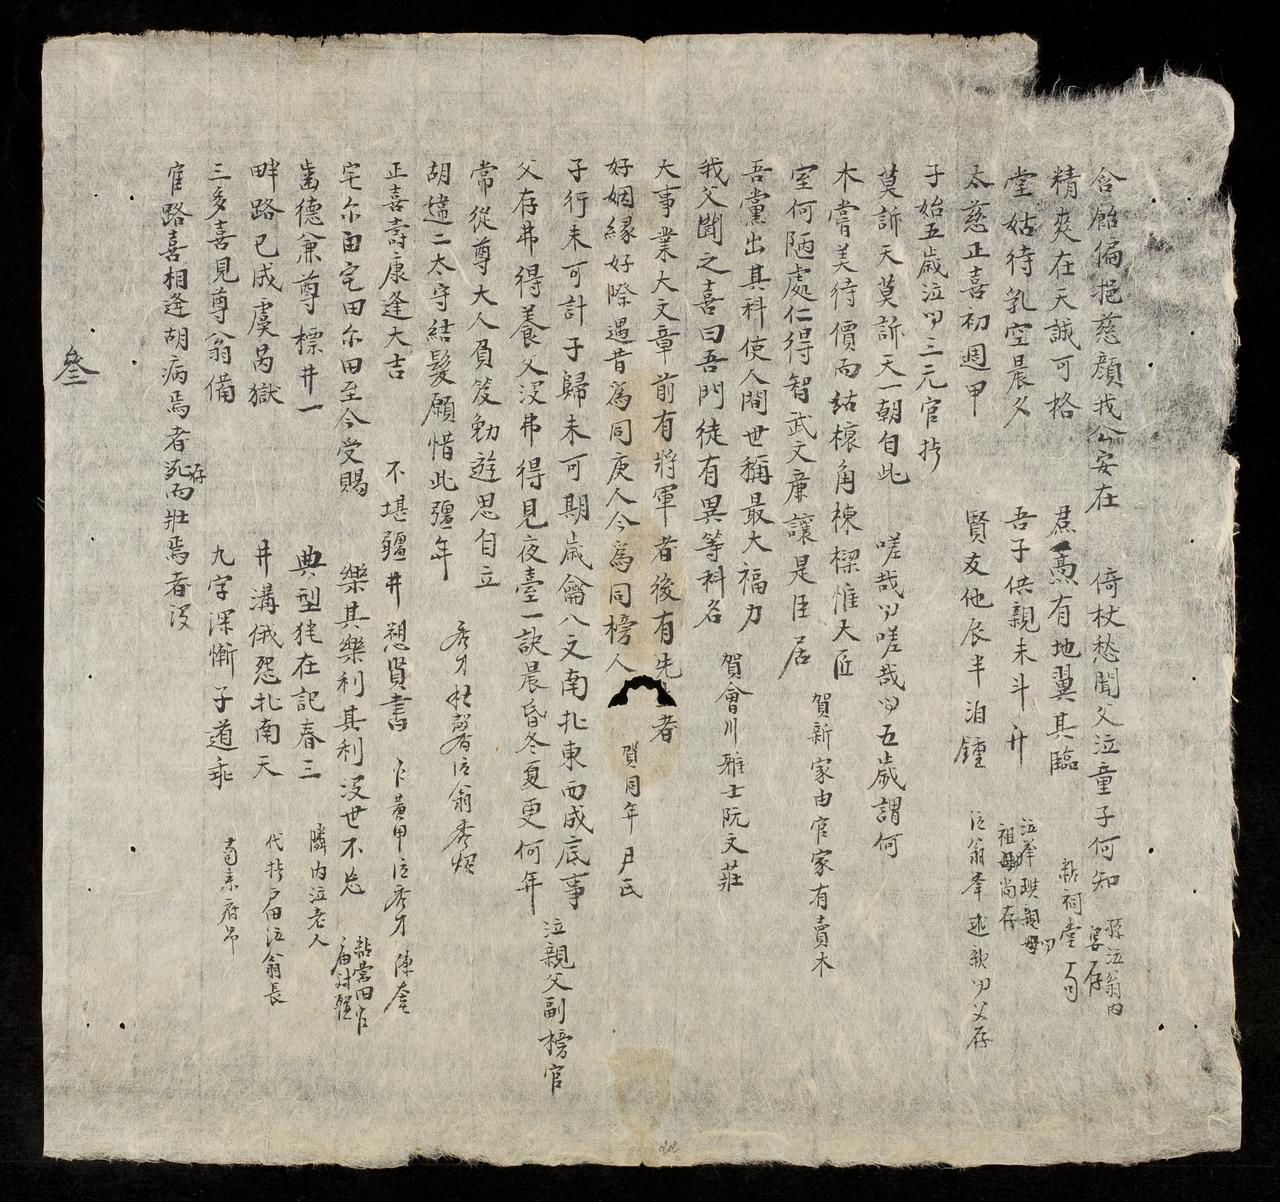 含飴偏挹慈顔我公安在　倚杖愁聞父泣童子何知　孫泣翁内
精爽在天誠可格　焄蒿有地翼其臨　祠堂
堂姑待乳空晨夕　吾子供親未斗升　祖母尚存
太慈正喜初週甲　賢友他辰半泊鍾　父存
子始五歲泣三元官
莫訴天莫訴天一朝自此　嗟哉嗟哉五歲謂何
木嘗美待價而沽榱角棟樑惟大匠　賀新家由官家有賣木
室何陋處仁得智武文廉讓是臣居
吾黨出其科使人間世稱最大福力　賀會川雅士阮文莊
我父聞之喜曰吾門徒有異等科名
大事業大文章前有將軍者後有先者
好姻緣好際遇昔為同庚人今為同榜人　賀同年尹氏
子行未可計子歸未可期歲籥八文南北東西成底事　泣親父副榜官
父存弗得養父沒弗得見夜臺一訣晨昏冬夏更何年
常從尊大人負笈勉遊思自立
胡遣二太守結髮願惜此彊年
正喜壽康逢大吉　不堪疆井愬賢書
宅尔田宅田尔田至今受賜　樂其樂利其利沒世不忘
齒德兼尊標井一　典型犹在記春三　隣内泣老人
畔路已成虞芮獄　井溝俄怨北南天　泣翁長
三多喜見尊翁備　九字深慚子道乖
官路喜相逢胡病焉者存而壯焉者沒
叁